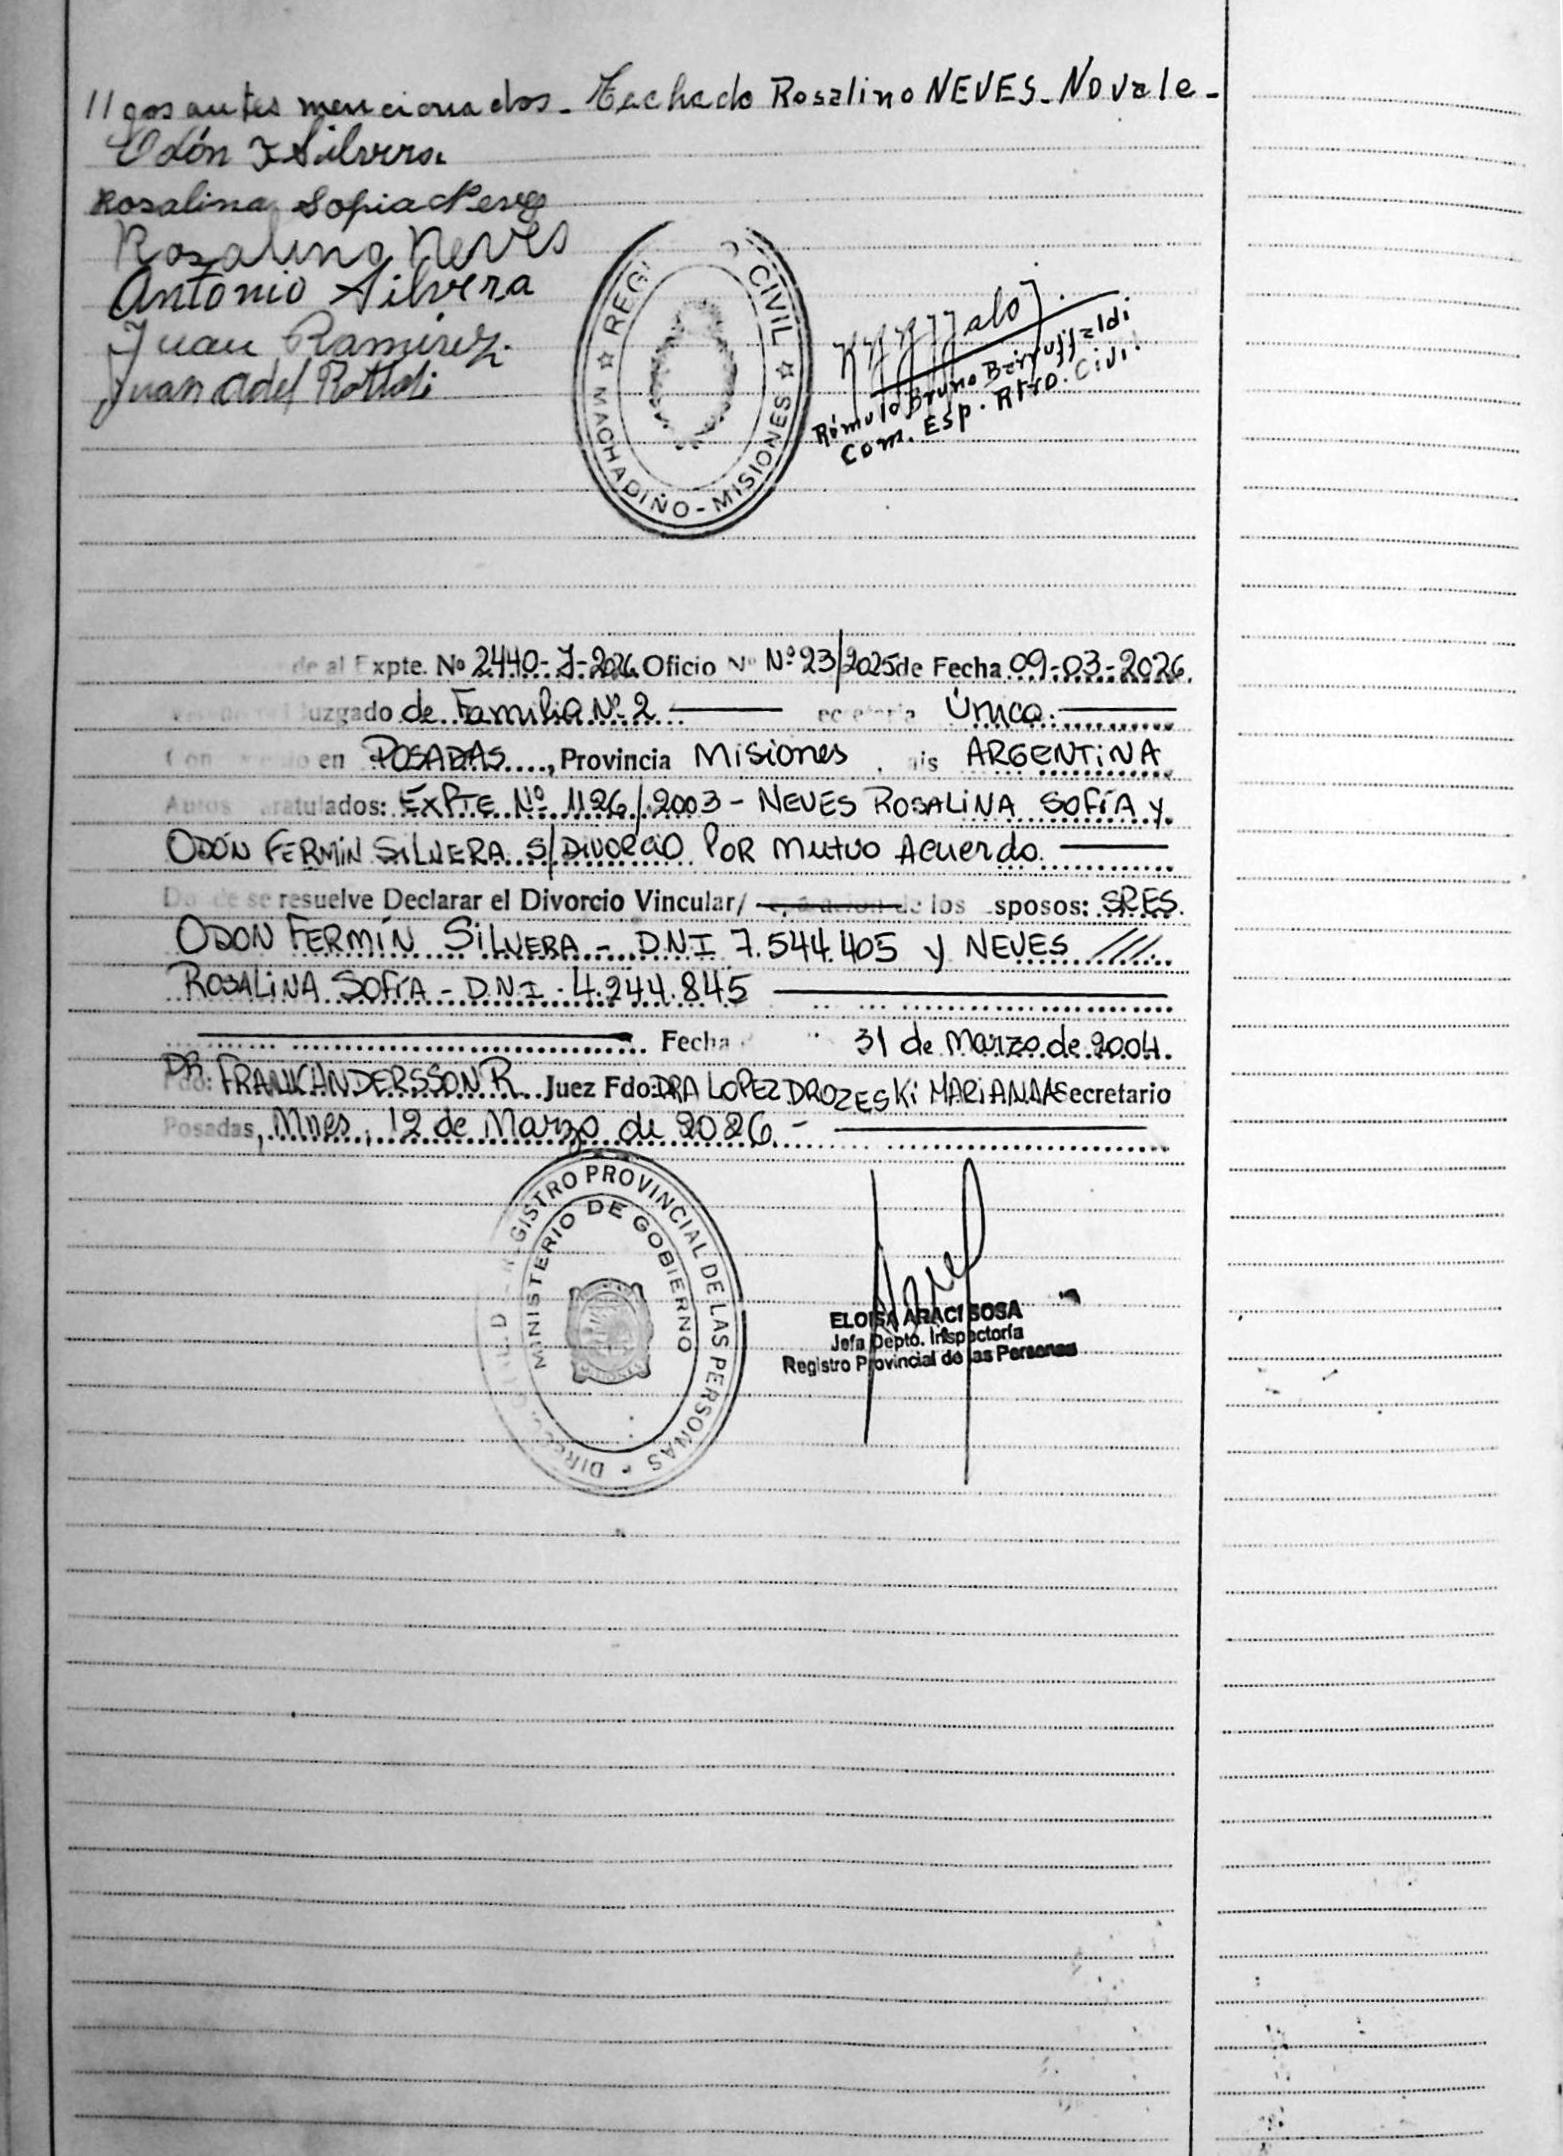 //gos antes mencionados - Tachado Rosalino NEVES - No vale -
Odón F Silvera
Rosalina Sofia Neves
Rosalino Neves
Antonio Silvera
Juan Ramirez
Juan Adel
REGI CIVIL
MACHADIÑO - MISIONES
Rómulo Bruno Barruffaldi
Com. Esp. Rtro. Civil
de al Expte. Nº 2440-J-2026 Oficio Nº Nº 23/2025 de Fecha 09-03-2026
Juzgado de Familia Nº 2 Secretaria Única.
en POSADAS, Provincia Misiones, ARGENTINA
Autos aratulados: EXPTE Nº 1126/2003 - NEVES ROSALINA SOFÍA y
ODÓN FERMÍN SILVERA S/DIVORCIO POR MUTUO ACUERDO
se resuelve Declarar el Divorcio Vincular/ de los esposos: SRES.
ODON FERMÍN SILVERA - DNI 7.544.405 y NEVES ///
ROSALINA SOFÍA - D.N.I. 4.244.845
Fecha 31 de Marzo de 2004.
Fdo: DR. FRANK ANDERSSON R. Juez Fdo: DRA LOPEZ DROZESKI MARIANA Secretario
Posadas, Mnes, 12 de Marzo de 2026 -
REGISTRO PROVINCIAL DE LAS PERSONAS
MINISTERIO DE GOBIERNO
ELOISA ARACI SOSA
Jefa Depto. Inspectoría
Registro Provincial de las Personas